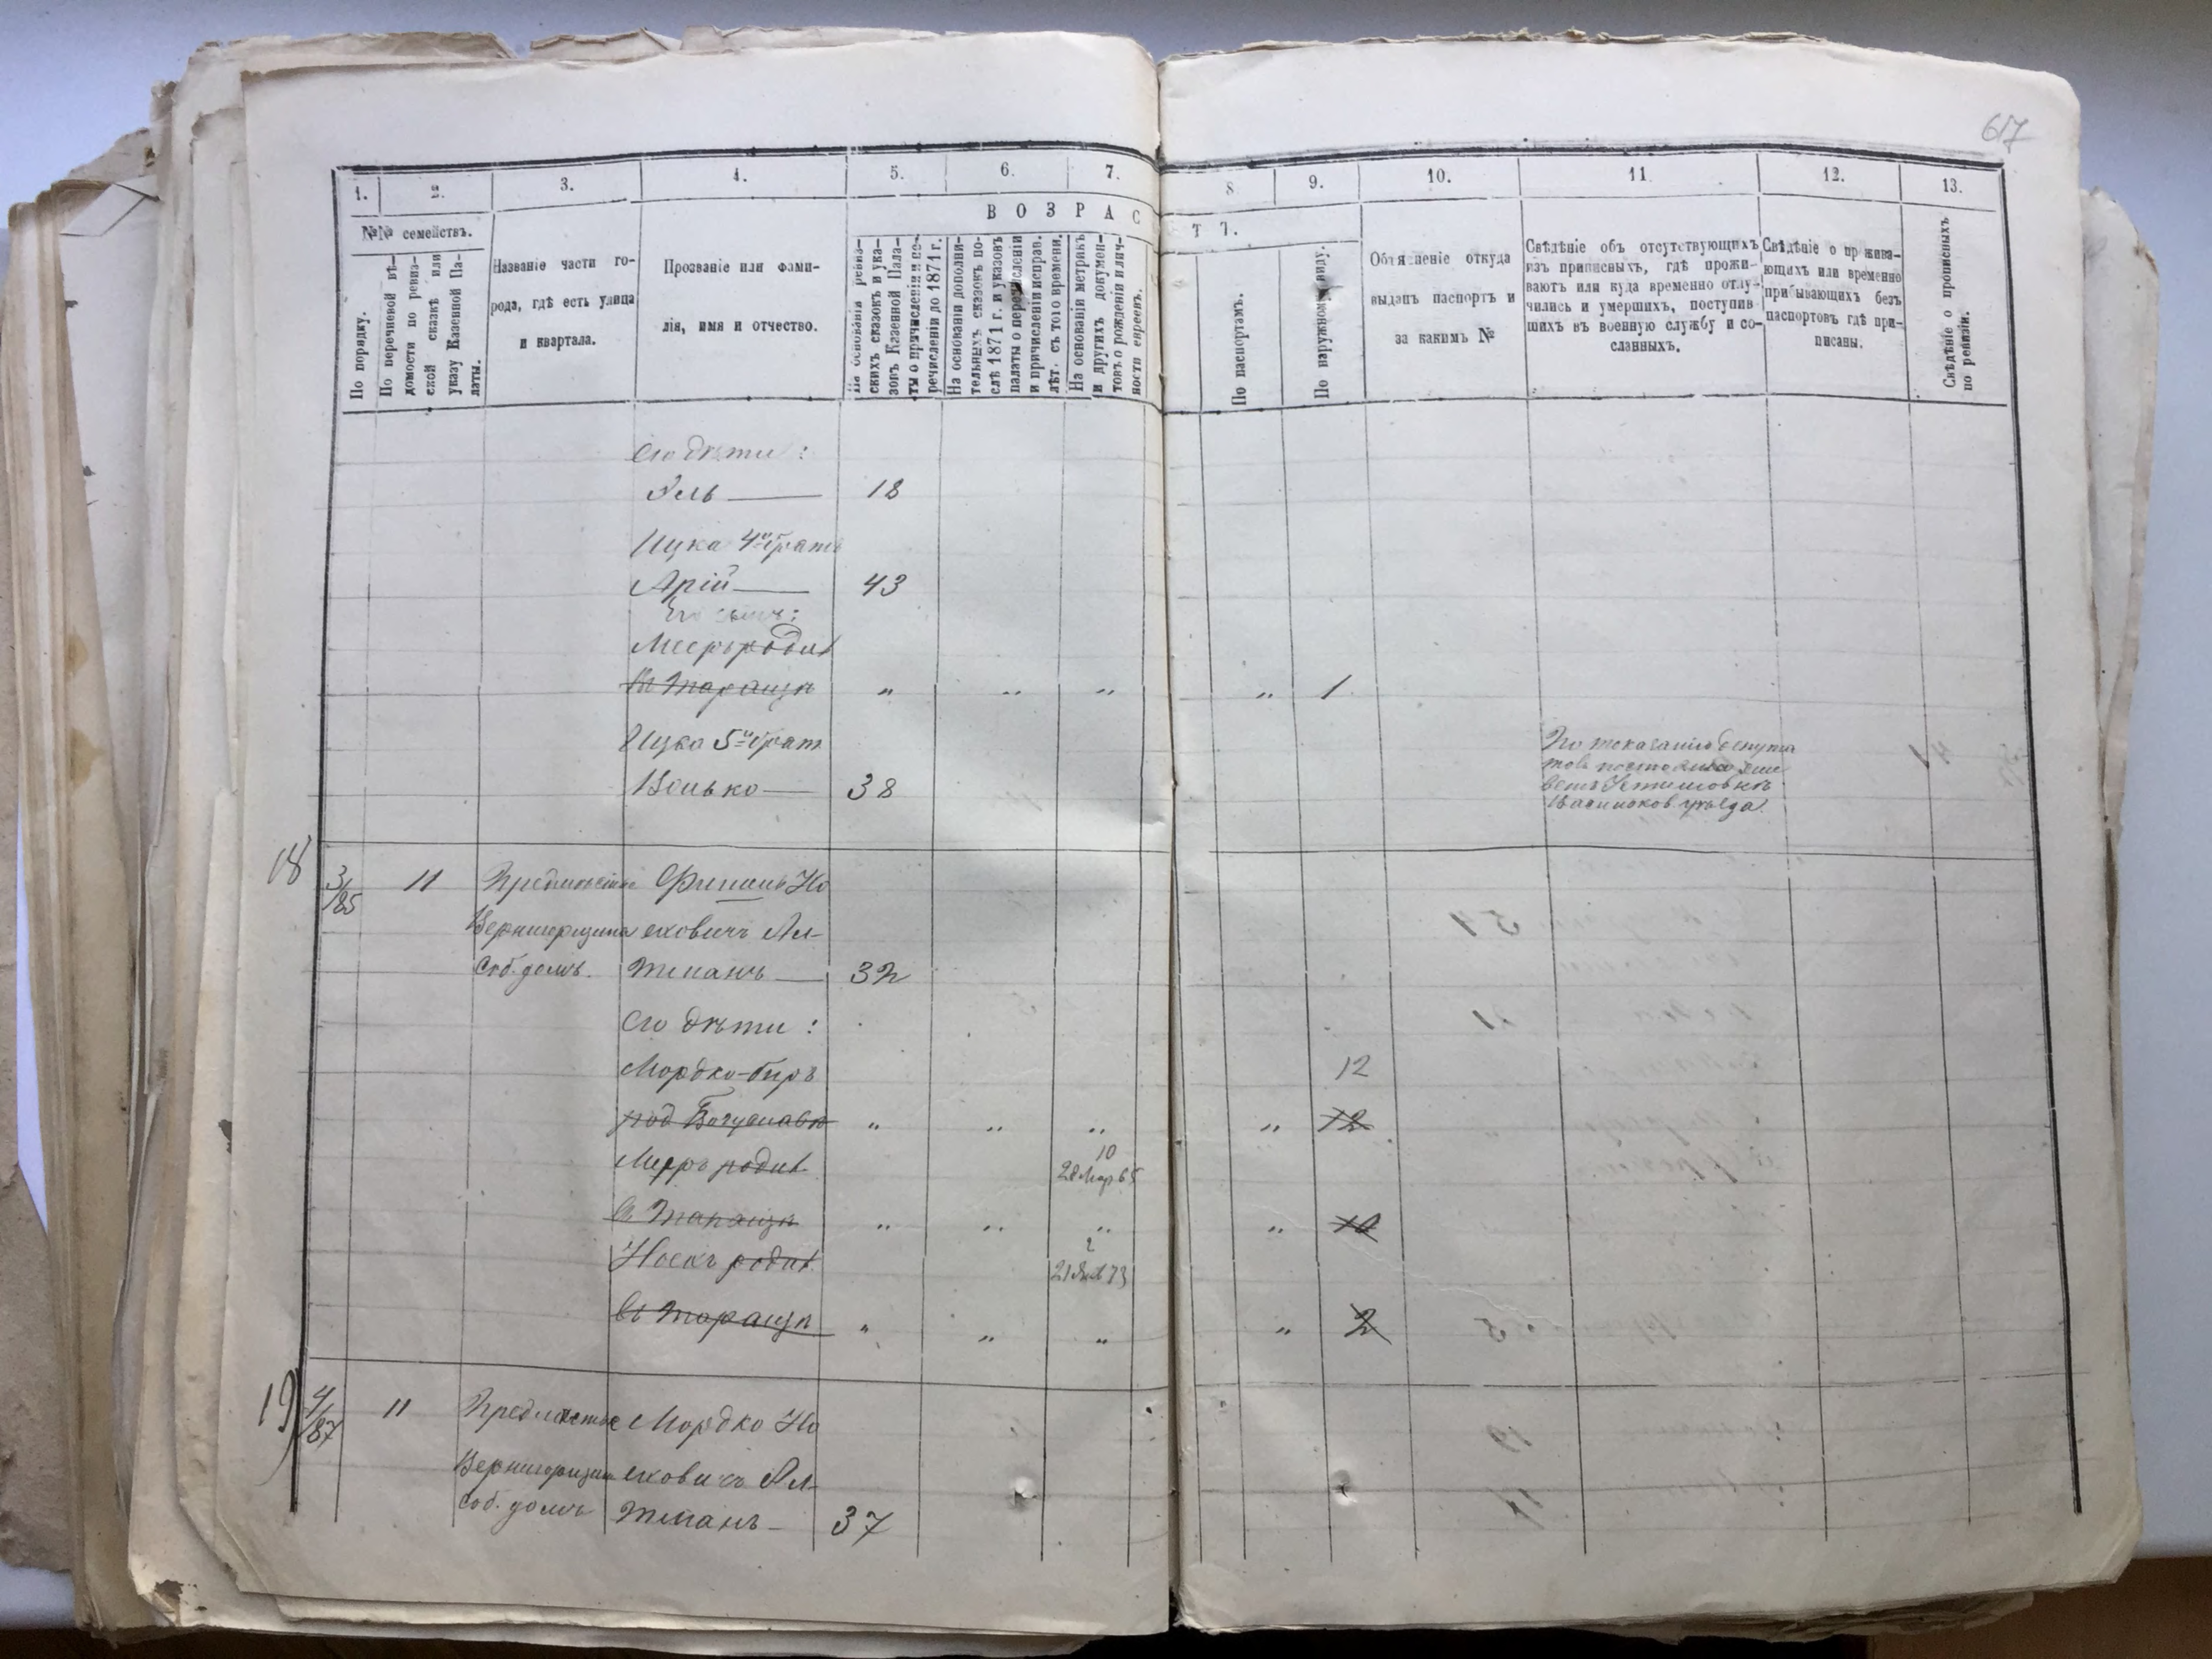 617
1. 2. 3. 4. 5. 6. 7. 8 9. 10. 11. 12. 13.
№№ семействъ.
ВОЗРАСТЪ.
По порядку.
По перечневой вѣ-
домости по ревиз-
ской сказкѣ или
указу Казенной Па-
латы.
Названіе части го-
рода, гдѣ есть улица
и квартала.
Прозваніе или фами-
лія, имя и отчество.
На основаніи ревиз-
скихъ сказокъ и ука-
зовъ Казенной Пала-
ты о причисленіи и пе-
речисленіи до 1871 г.
На основаніи дополни-
тельныхъ сказокъ по-
слѣ 1871 г. и указовъ
палаты о перечисленіи
и причисленіи исправ.
лѣт. съ того времени.
На основаніи метрикъ
и другихъ докумен-
товъ о рожденіи и лич-
ности евреевъ.
По паспортамъ.
По наружному виду.
Объясненіе откуда
выданъ паспортъ и
за какимъ №
Свѣдѣніе объ отсутствующихъ
изъ приписныхъ, гдѣ прожи-
ваютъ или куда временно отлу-
чились и умершихъ, поступив-
шихъ въ военную службу и со-
сланныхъ.
Свѣдѣніе о прожива-
ющихъ или временно
прибывающихъ безъ
паспортовъ гдѣ при-
писаны.
Свѣдѣніе о прописныхъ
по ревизіи.
Его дѣти:
Эль — 18
Ицка 4й братъ
Арій — 43
Его сынъ:
Мееръ родив
въ Таращѣ " " " " 1
Ицка 5й братъ
Волько — 38
По показанію депута
товъ постоянно жи
ветъ
Васильков уѣзда.
18 3/85 11 Предмѣстье Фишель Но
Вернигорщина сковичъ Ал-
Соб. домъ. тманъ — 32
Его дѣти:
Мордко-Беръ 12
род Богуславѣ " " " " 12
Мееръ родив 10 28 Мар 65
в Таращѣ " " " " 10
Носекъ родив 2 21 Янв 73
въ Таращѣ " " " " 2
19 4/87 11 Предмѣстье Мордко Но
Вернигорщина сковичъ Ал-
Соб. домъ тманъ — 37